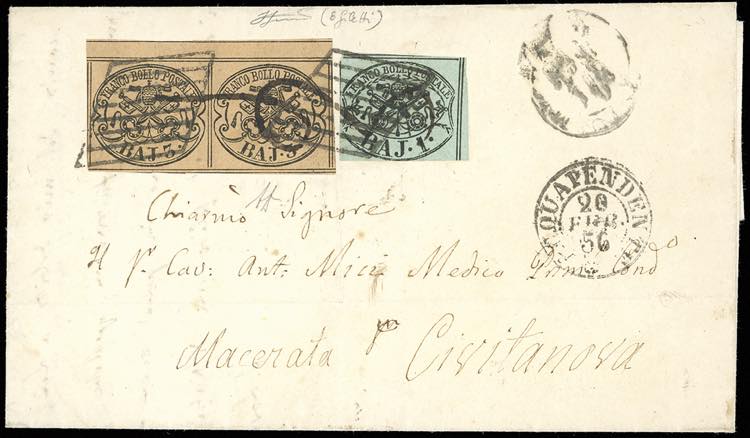 FRANCO BOLLO POSTALE
BAJ. 3.
FRANCO BOLLO POSTALE
BAJ. 3.
FRANCO BOLLO POSTALE
BAJ. 1.
ACQUAPENDENTE
20
FEB.
56
Chiarmo Signore
Il Sr. Cav: Ant: Mici Medico Prim: Condo
Macerata pr Civitanova